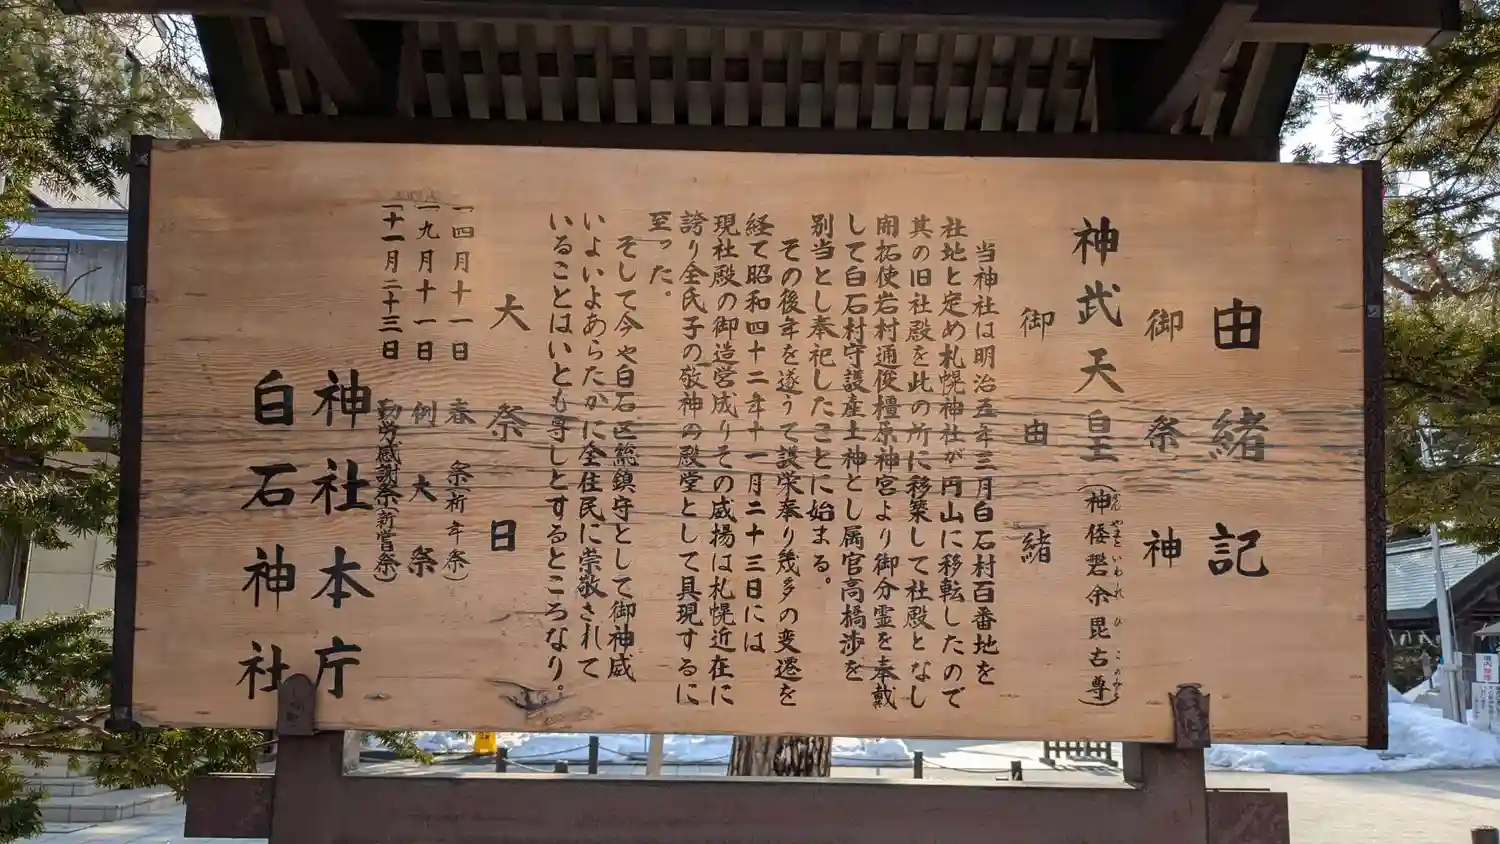 由緒記
御祭神
神武天皇(神倭磐余毘古尊)
かん やまと いわれ ひ このみこと
御由緒
当神社は明治五年三月白石村百番地を
社地と定め札幌神社が円山に移転したので
其の旧社殿を此の所に移築して社殿となし
開拓使岩村通俊橿原神宮より御分霊を奉戴
して白石村守護産土神とし属官高橋渉を
別当とし奉祀したことに始まる。
その後年を遂うて護栄奉り幾多の変遷を
経て昭和四十二年十一月二十三日には
現社殿の御造営成りその威揚は札幌近在に
誇り全氏子の敬神の殿堂として具現するに
至った。
そして今や白石区総鎮守として御神威
いよいよあらたかに全住民に崇敬されて
いることはいとも尊しとするところなり。
大祭日
一四月十一日 春祭(祈年祭)
一九月十一日 例大祭
一十一月二十三日 勤労感謝祭(新嘗祭)
神社本庁
白石神社